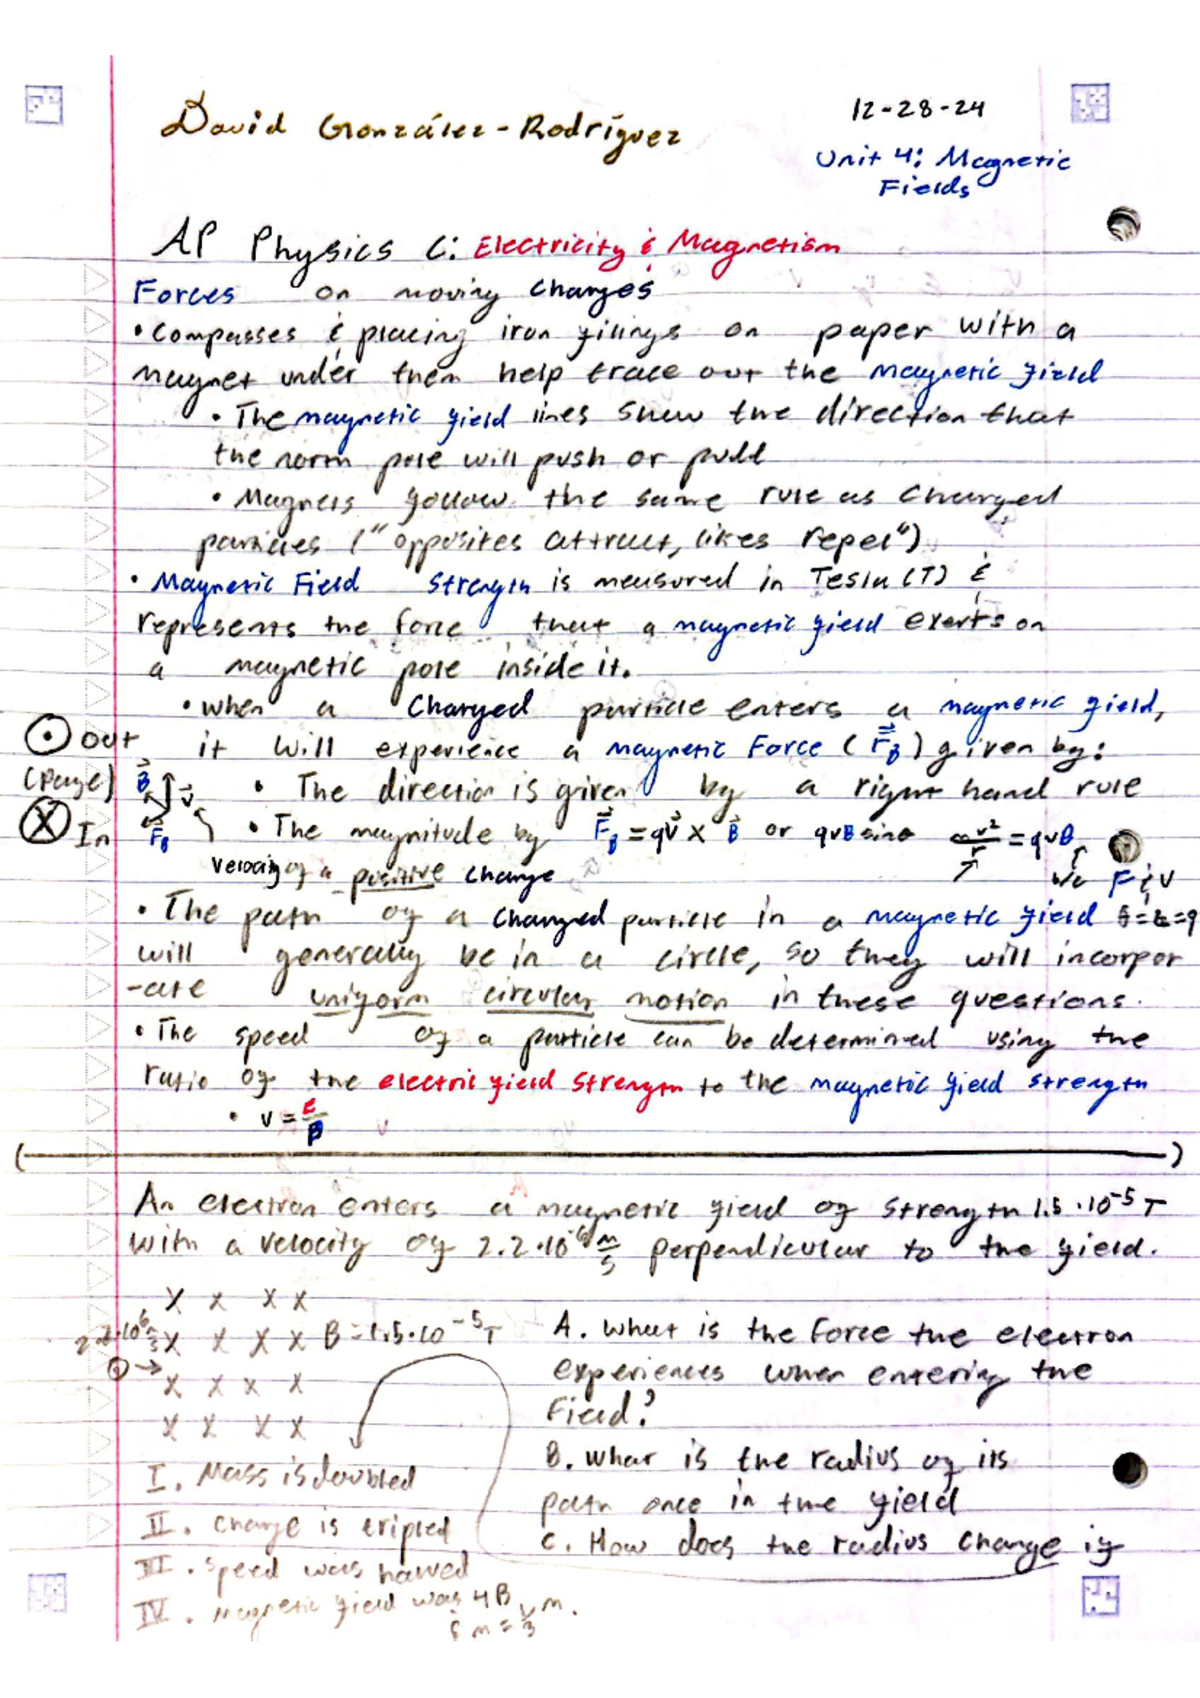 David González-Rodríguez
12-28-24
Unit 4: Magnetic
Fields
AP Physics C: Electricity & Magnetism
Forces on moving charges
• Compasses & placing iron filings on paper with a
magnet under them help trace out the magnetic field
• The magnetic field lines show the direction that
the norm pole will push or pull
• Magnets follow the same rule as charged
particles ("opposites attract, likes repel")
• Magnetic Field Strength is measured in Tesla (T) &
represents the force that a magnetic field exerts on
a magnetic pole inside it.
• when a Charged particle enters a magnetic field,
it will experience a magnetic Force (F⃗B) given by:
Out
(Page)
In
B⃗
v⃗
F⃗B
• The direction is given by a right hand rule
• The magnitude by F⃗B = qv⃗ x B⃗ or qvBsinθ mv²/r = qvB
velocity of a positive charge
F & v
• The path of a charged particle in a magnetic field
will generally be in a circle, so they will incorpor
-ate uniform circular motion in these questions.
• The speed of a particle can be determined using the
ratio of the electric field strength to the magnetic field strength
• v = E/B
An electron enters a magnetic field of strength 1.5 · 10⁻⁵ T
with a velocity of 2.2 · 10⁶ m/s perpendicular to the field.
X X X X
2.2·10⁶ m/s X X X X B = 1.5·10⁻⁵ T
X X X X
X X X X
A. What is the force the electron
experiences when entering the
field?
B. What is the radius of its
path once in the field
C. How does the radius change if
I. Mass is doubled
II. Charge is tripled
III. Speed was halved
IV. Magnetic field was 4B
& m = 1/3 m.